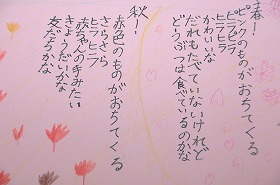 春!
ピンクのものがおちてくる
ヒラヒラ
ヒラヒラ
かわいいな
だれもたべていないけれど
どうぶつは食べているのかな
秋!
赤色のものがおちてくる
さらさら
ヒラヒラ
赤ちゃんの手みたい
きょうだいかな
友だちかな